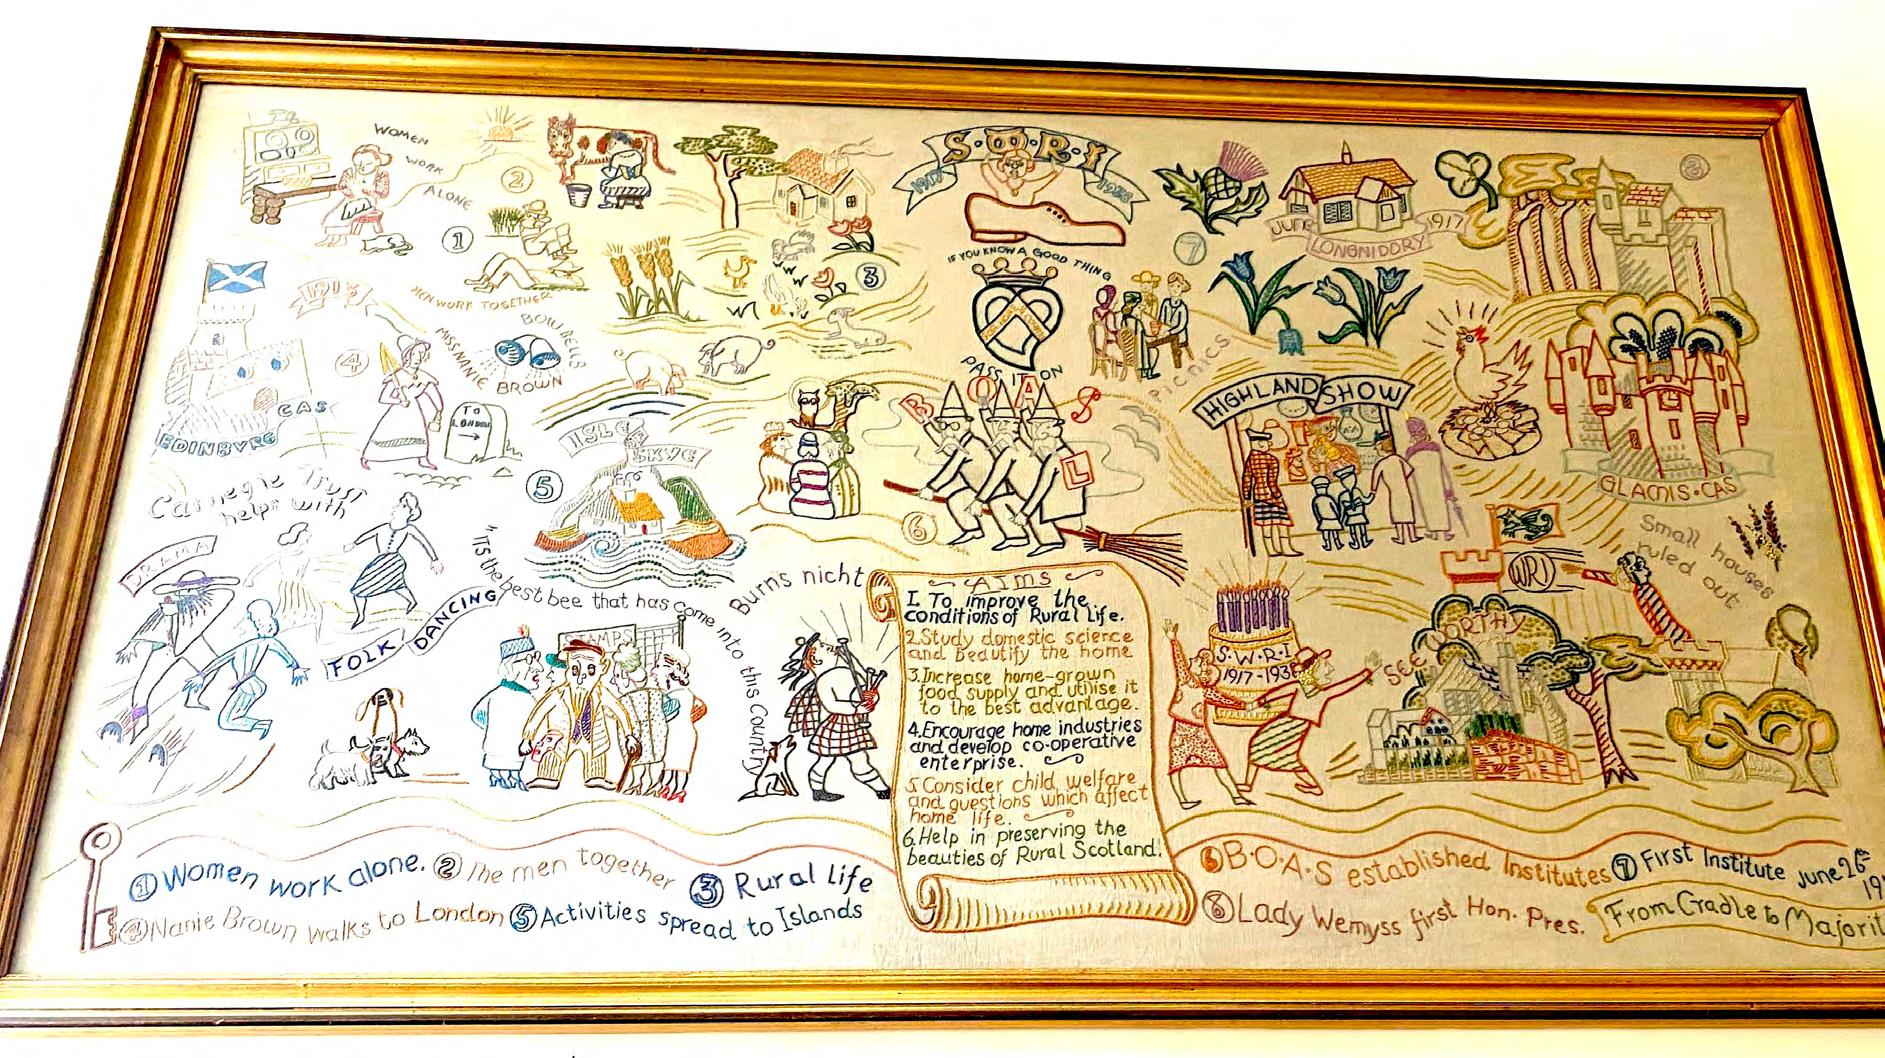 WOMEN
WORK
ALONE
②
①
MEN WORK TOGETHER
③
S·O·R·I
1917
1938
IF YOU KNOW A GOOD THING
PASS IT ON
⑦
JUNE 1917
LONGNIDDRY
8
1913
④
MISS NANIE BROWN
BOW BELLS
TO
LONDON
EDINBVRG
CAS
ISLE
OF
SKYE
⑤
BOAS
L
⑥
PICNICS
HIGHLAND SHOW
GLAMIS·CAS
Carnegie Trust
helps with
DRAMA
FOLK DANCING
"ITS the best bee that has come into this Country
STAMPS
Burns nicht
AIMS
1. To improve the
conditions of Rural Life.
2. Study domestic science
and beautify the home
3. Increase home-grown
food supply and utilise it
to the best advantage.
4. Encourage home industries
and develop co-operative
enterprise.
5. Consider child welfare
and questions which affect
home life.
6. Help in preserving the
beauties of Rural Scotland.
S·W·R·I
1917-1938
SEE WORTHY
WRI
Small houses
ruled out
① Women work alone. ② The men together ③ Rural Life
④ Nanie Brown walks to London ⑤ Activities spread to Islands
⑥ B·O·A·S established Institutes ⑦ First Institute June 26th
⑧ Lady Wemyss first Hon. Pres.
From Cradle to